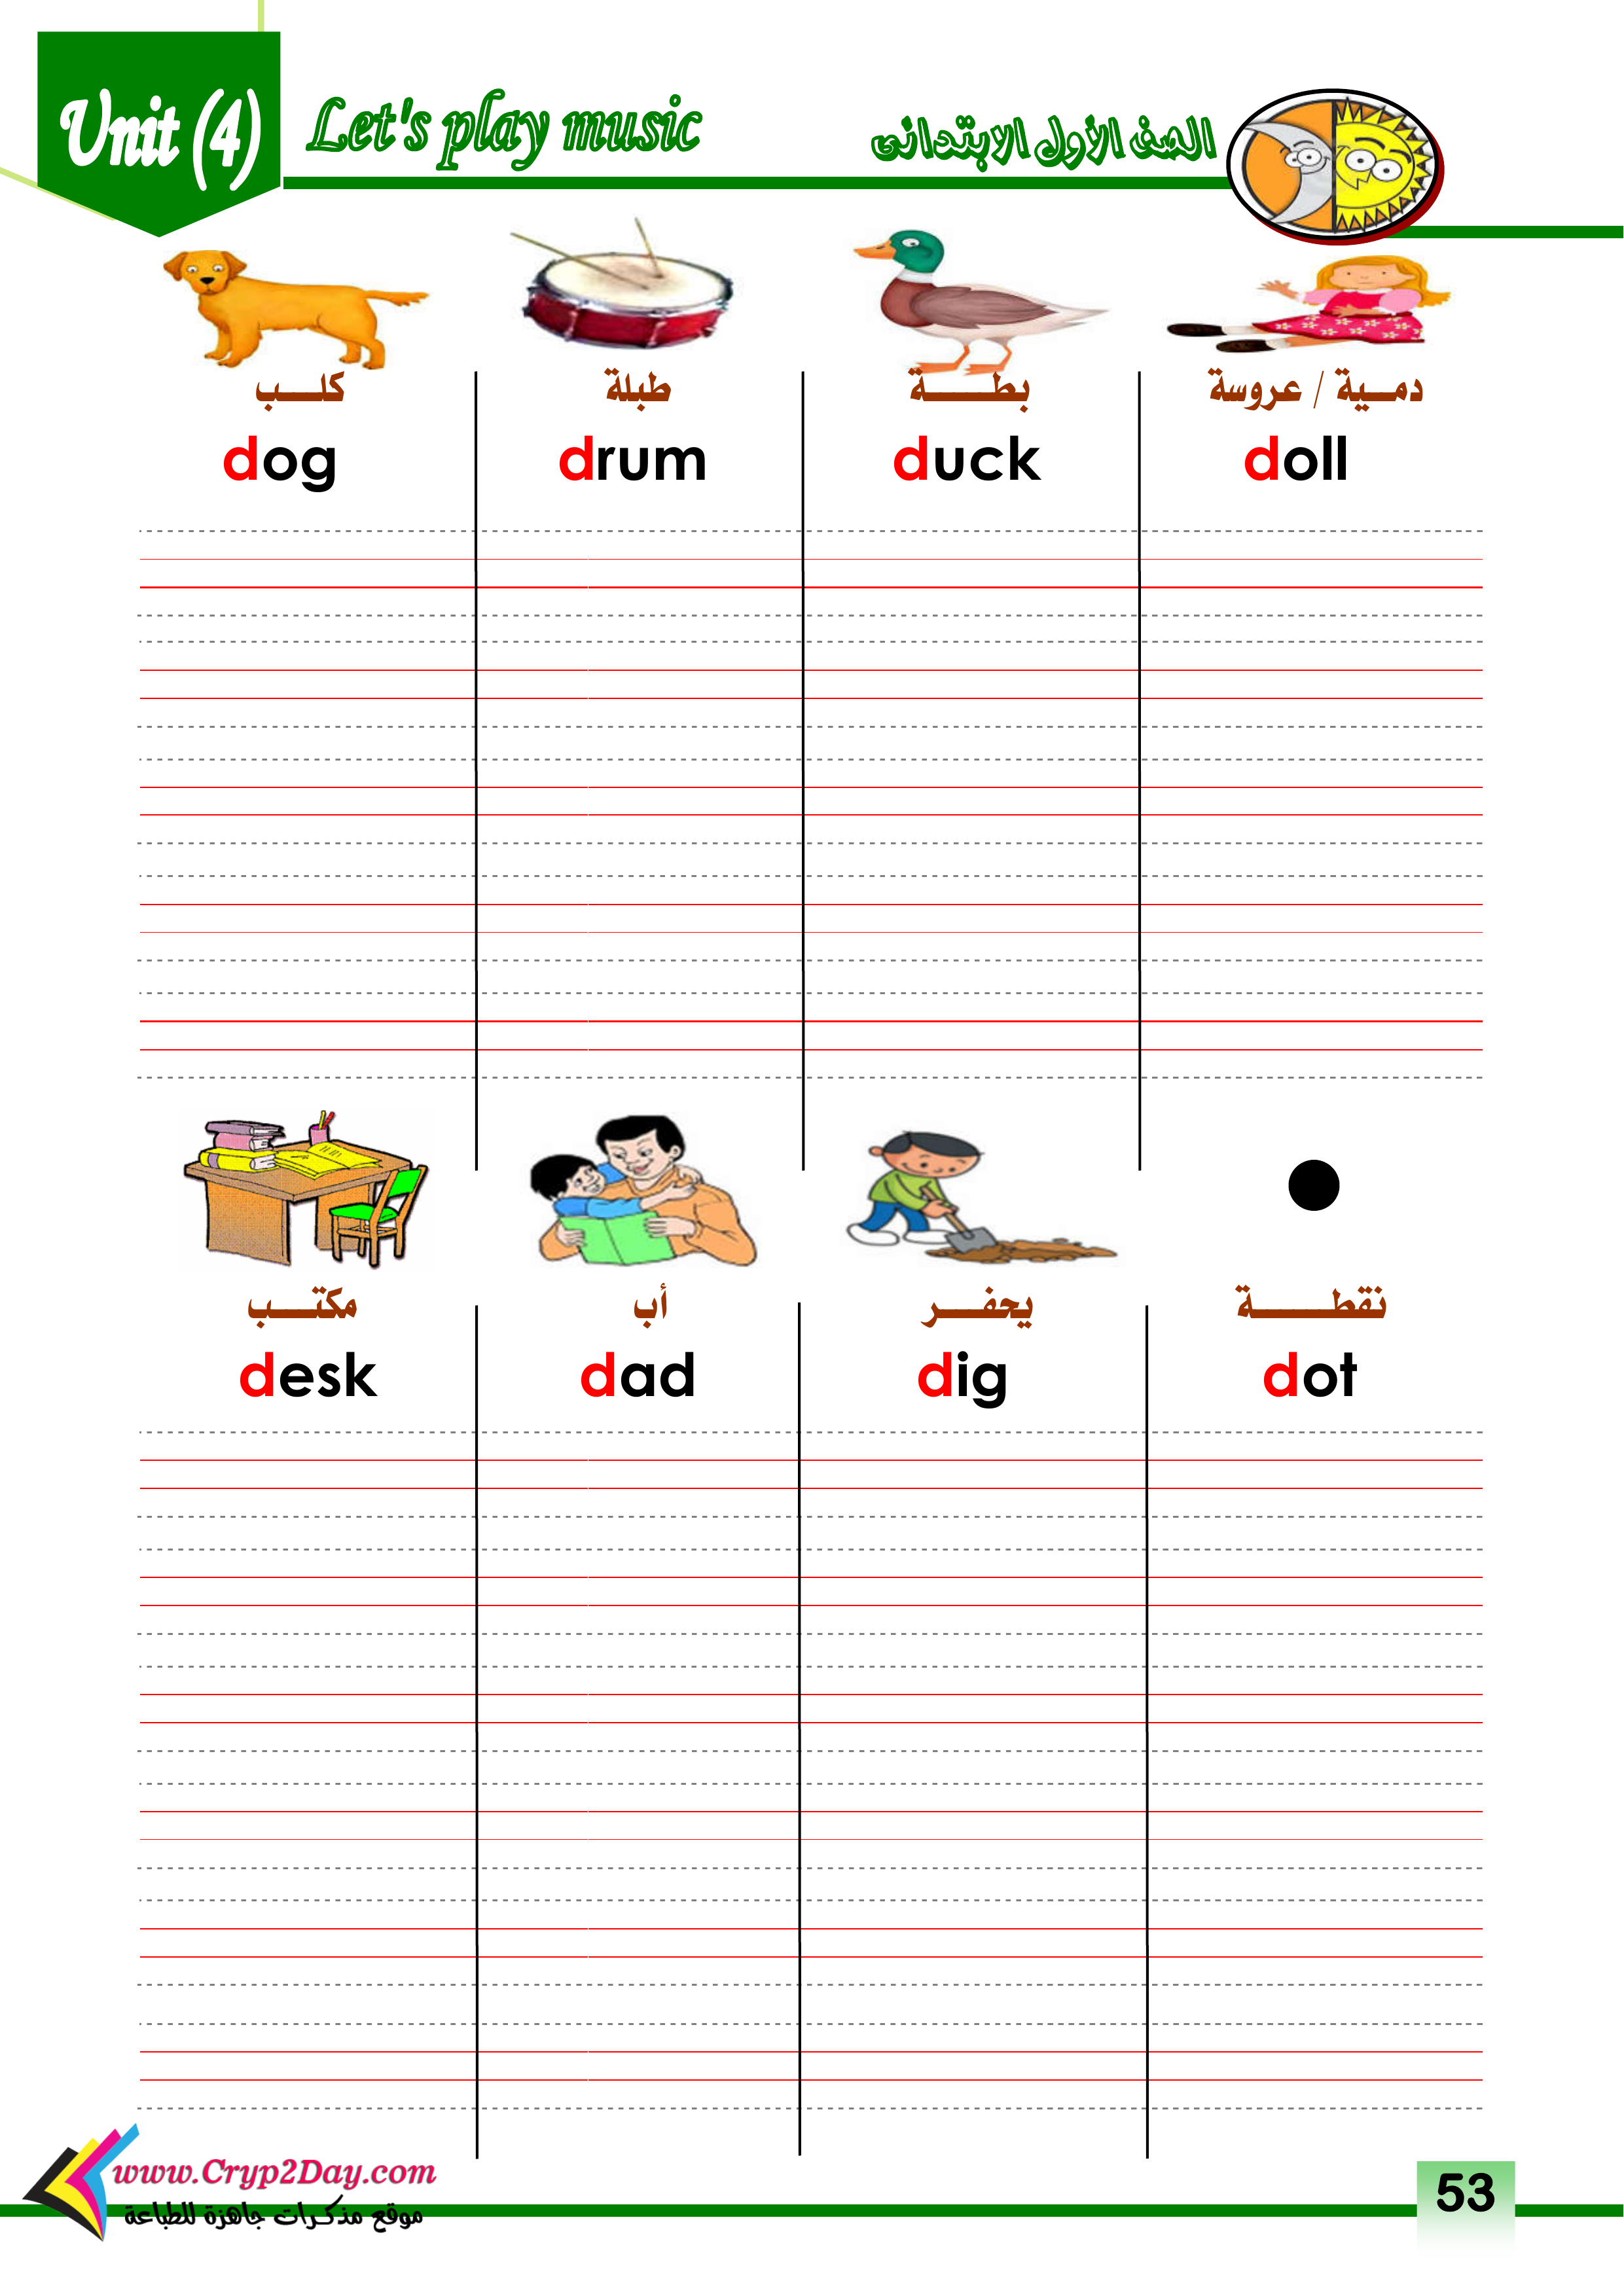 Unit (4) Let's play music الصف الأول الابتدائى
كلب طبلة بطة دمية / عروسة
dog drum duck doll
مكتب أب يحفر نقطة
desk dad dig dot
www.Cryp2Day.com
موقع مذكرات جاهزة للطباعة
53